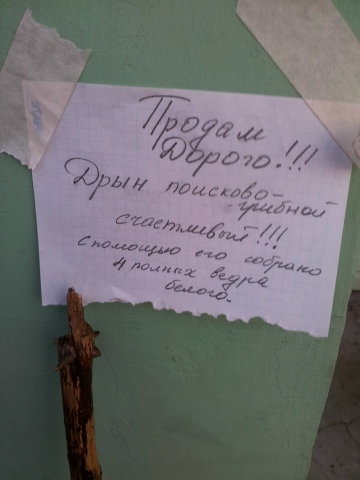 Продам
Дорого!!!
Дрын поисково-
-грибной
счастливый!!!
С помощью его собрано
4 полных ведра
белого.